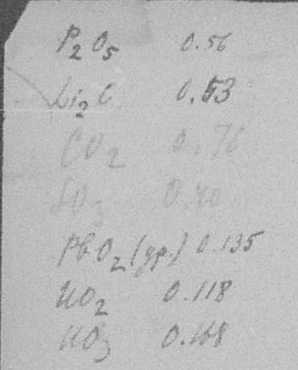 P2O5 0.56
Li2O 0.53
CO2 0.76
SO3 0.40
PbO2 (gp.) 0.135
UO2 0.118
UO3 0.168